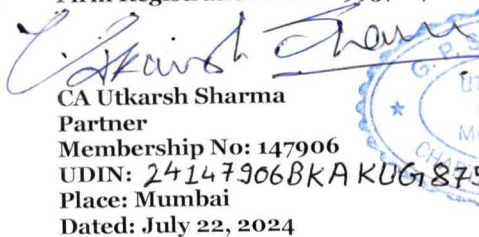 CA Utkarsh Sharma
Partner
Membership No: 147906
UDIN: 24147906BKAKUG875
Place: Mumbai
Dated: July 22, 2024
G. P. S